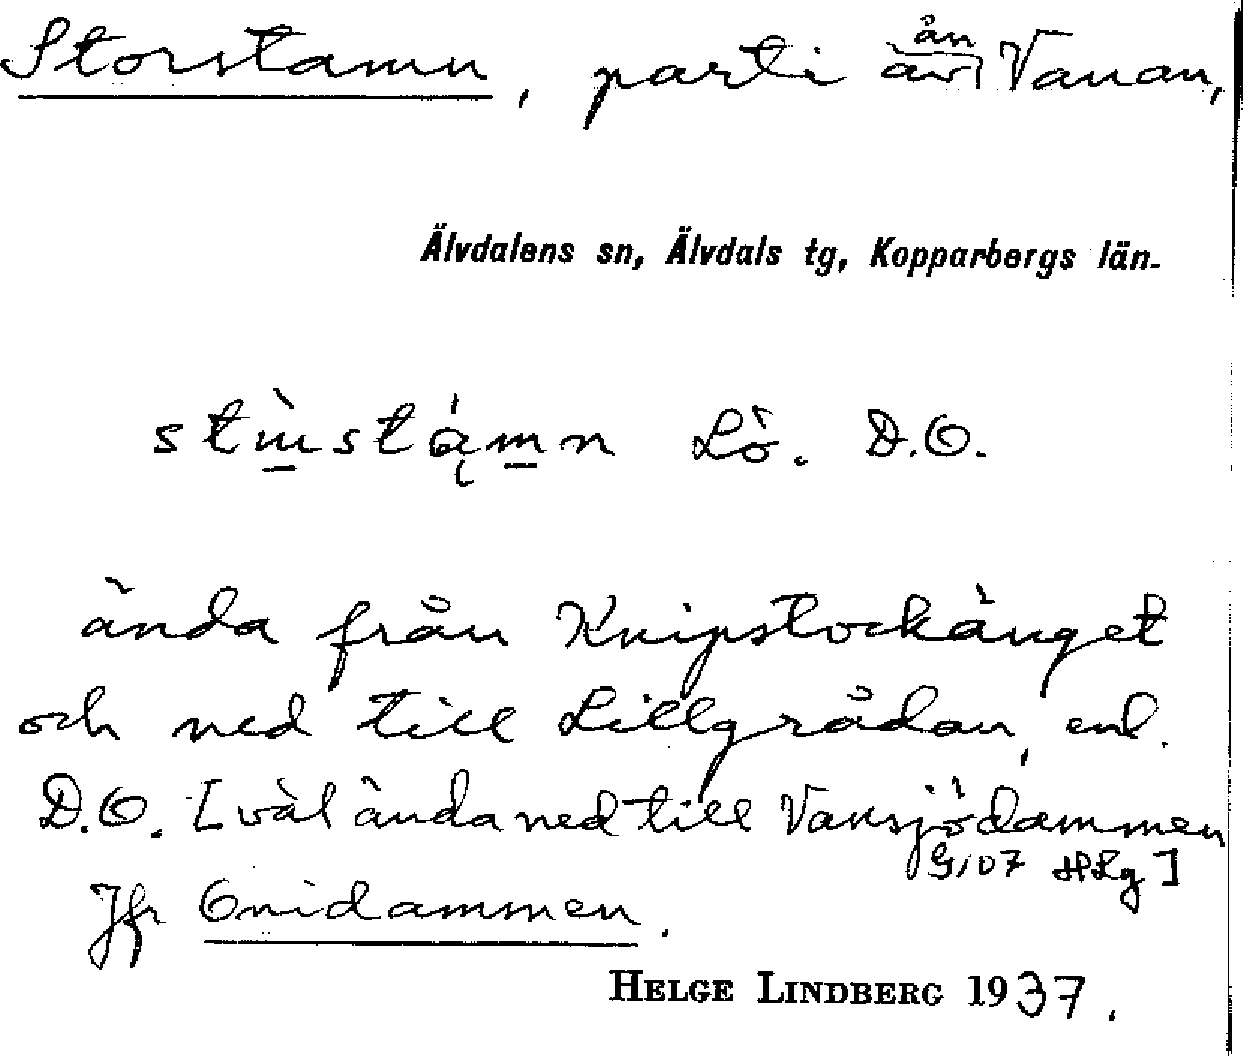 Storstamn, parti av ån Vanan,
Älvdalens sn, Älvdals tg, Kopparbergs län.
Lö. D.O.
ända från Knipstockänget
och ned till Lillgrådan, enl.
D.O. [väl ända ned till Vansjödammen
HLg]
Jfr Onidammen.
HELGE LINDBERG 1937.